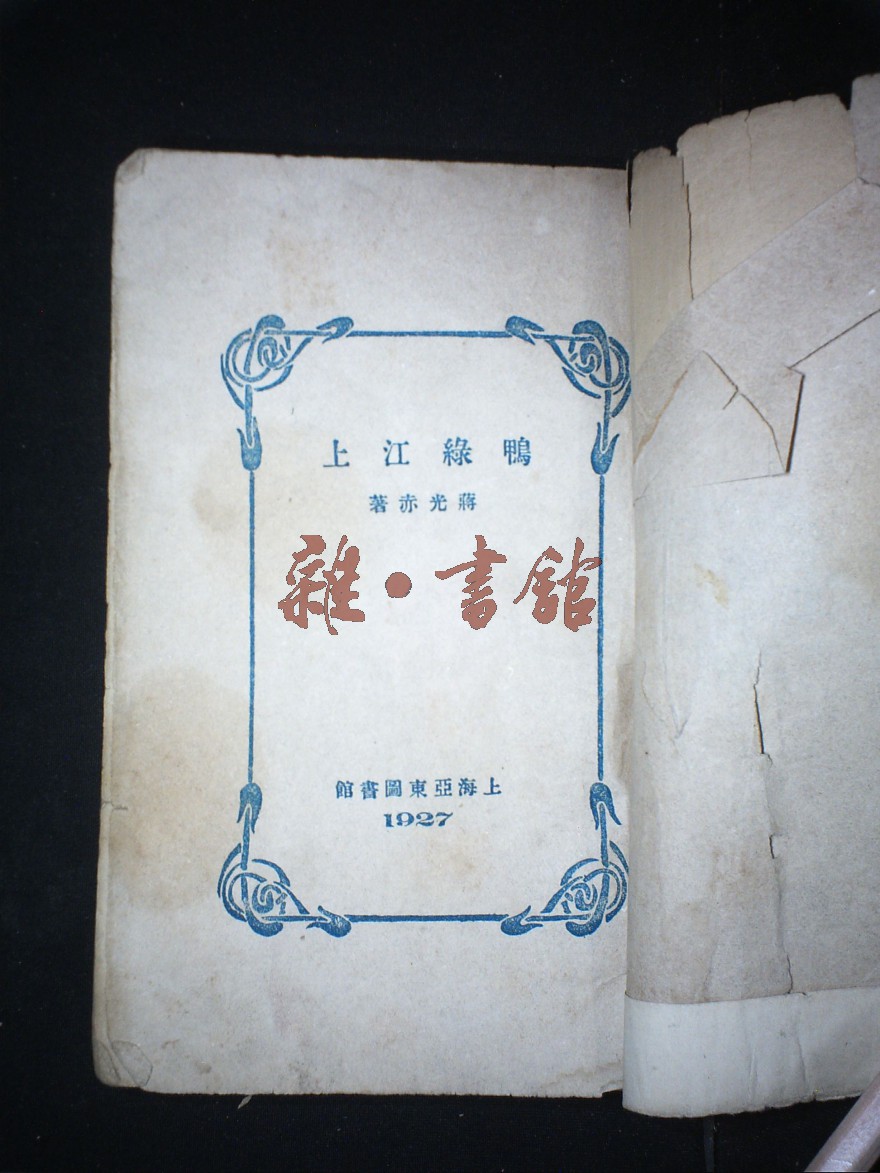 鴨綠江上
蔣光赤著
雜·書館
上海亞東圖書館
1927